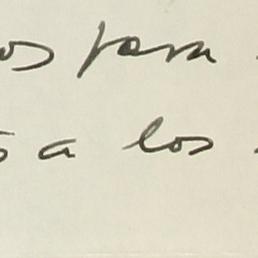 os para
s a los